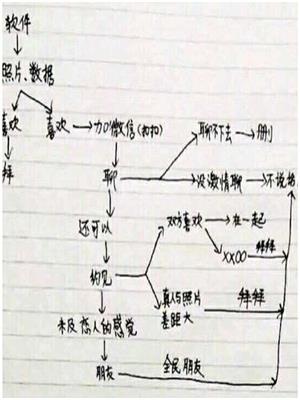 软件
照片、数据
喜欢 喜欢 加微信(扣扣) 聊不下去 删
拜 聊 没激情聊 不说话
还可以 双方喜欢 在一起
约见 XXOO 拜拜
真人与照片
差距大 拜拜
未及恋人的感觉
朋友 全民朋友